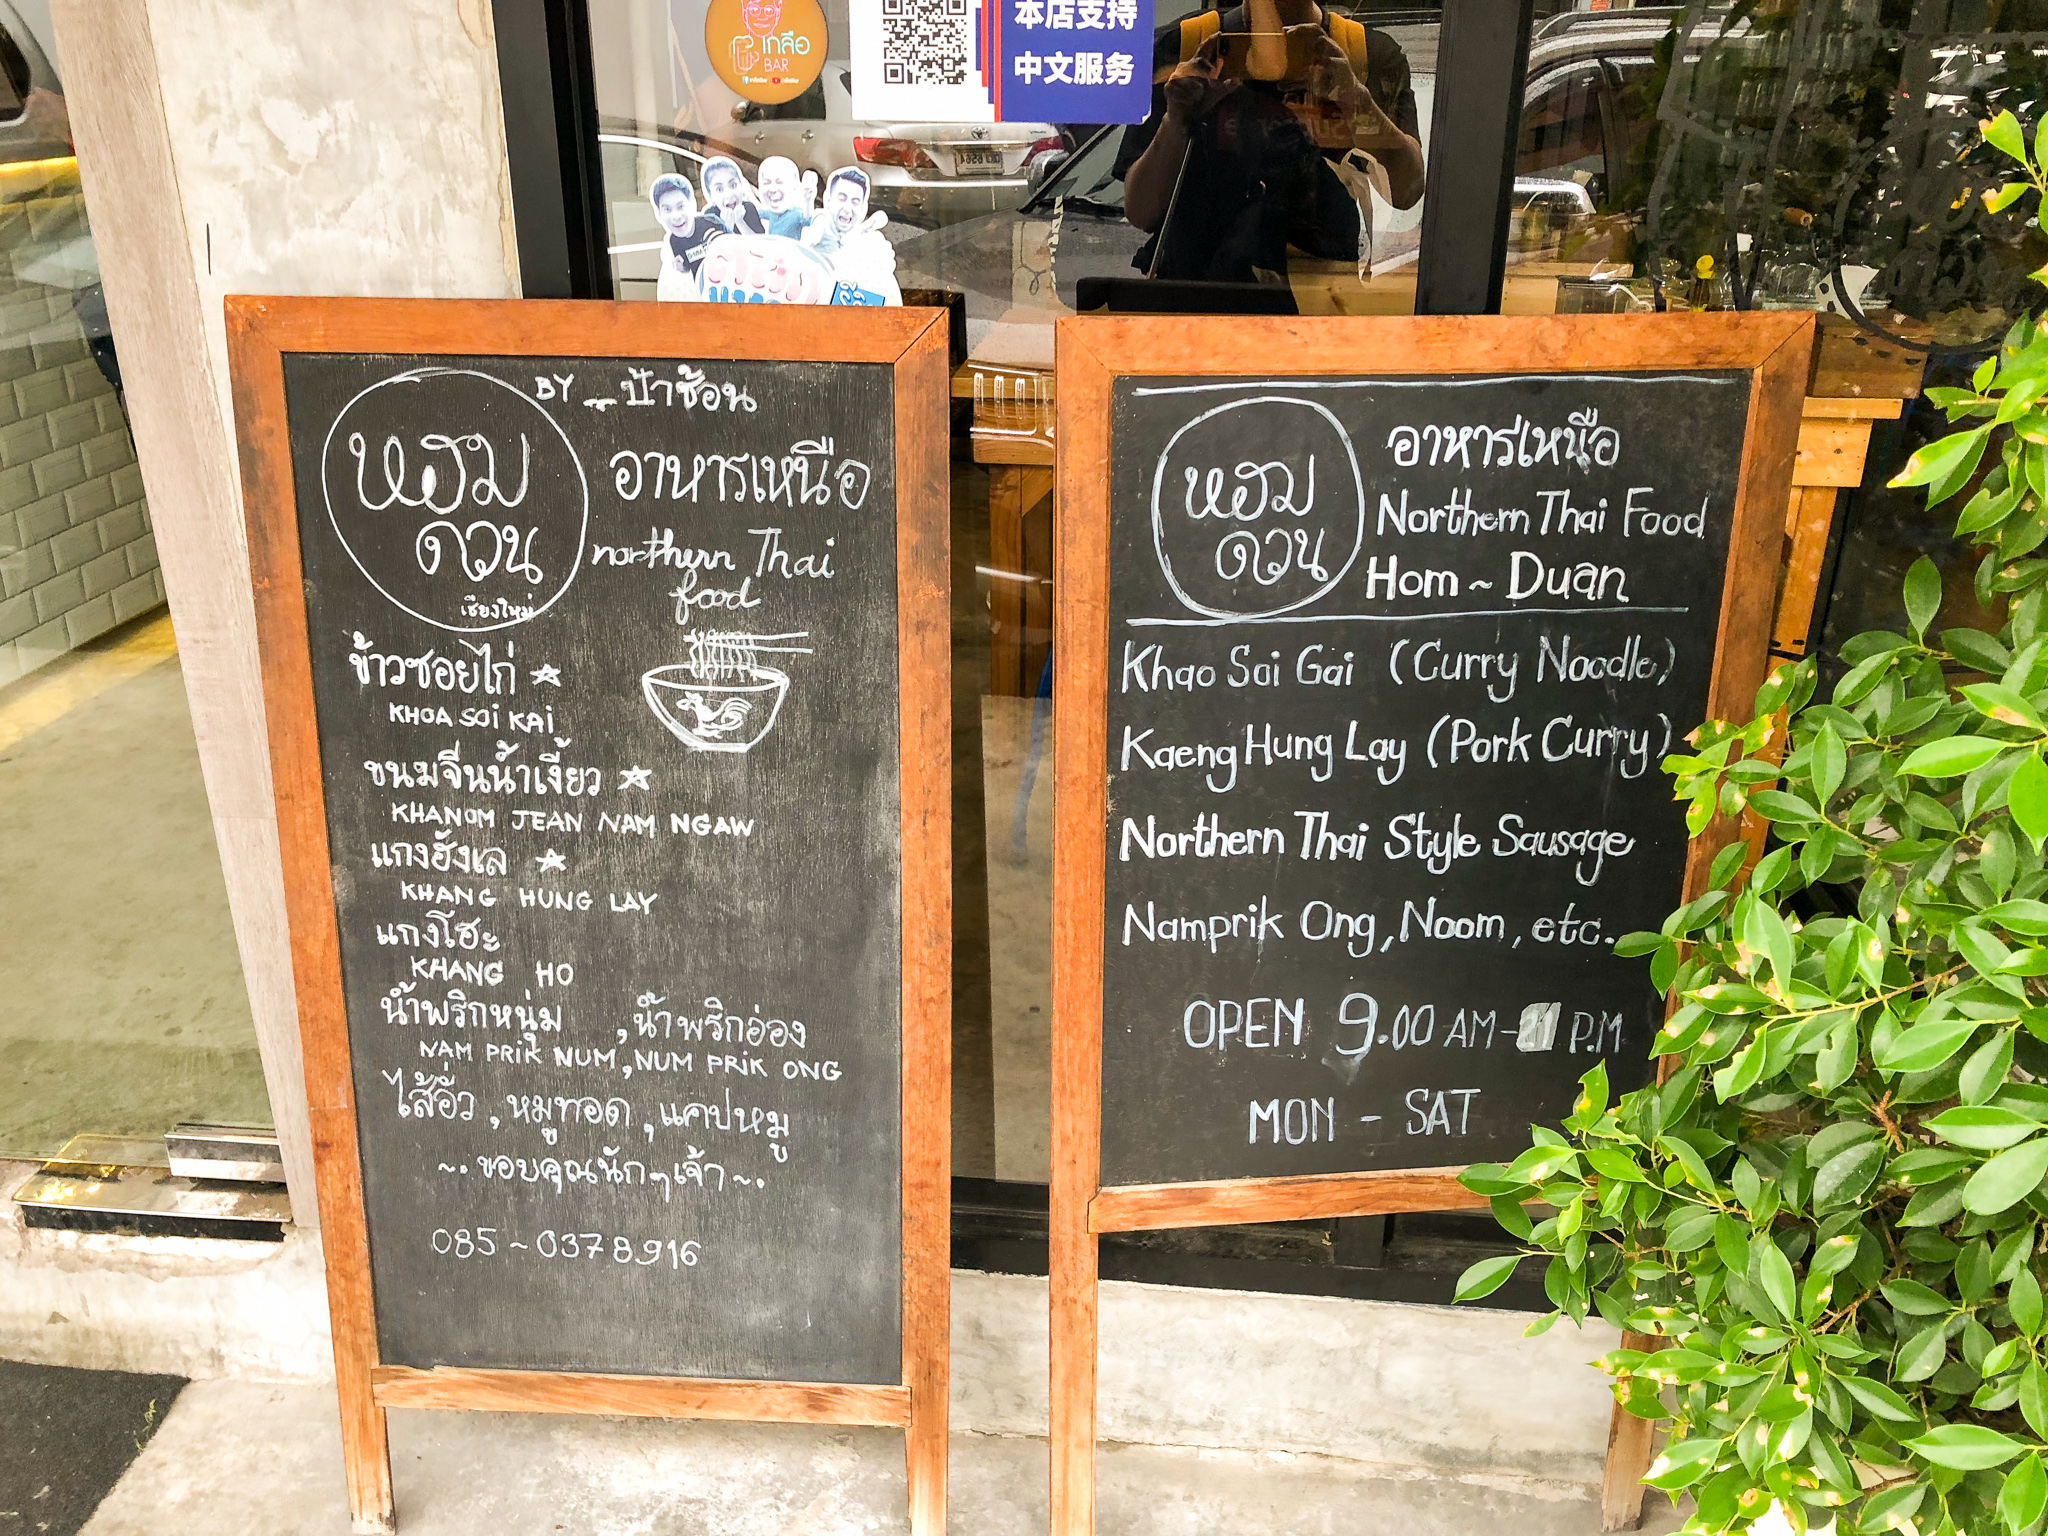 เกลือ
BAR
本店支持
中文服务
BY _ ป้าซ้อน
หอม
ด่วน
เชียงใหม่
อาหารเหนือ
northern Thai
food
ข้าวซอยไก่
KHOA SOI KAI
ขนมจีนน้ำเงี้ยว
KHANOM JEAN NAM NGAW
แกงฮังเล
KHANG HUNG LAY
แกงโฮะ
KHANG HO
น้ำพริกหนุ่ม , น้ำพริกอ่อง
NAM PRIK NUM, NUM PRIK ONG
ไส้อั่ว , หมูทอด , แคปหมู
~. ขอบคุณนักๆเจ้า ~.
085 ~ 0378916
หอม
ดวน
อาหารเหนือ
Northern Thai Food
Hom ~ Duan
Khao Soi Gai (Curry Noodle)
Kaeng Hung Lay (Pork Curry)
Northern Thai Style Sausage
Namprik Ong, Noom, etc.
OPEN 9.00 AM - P.M
MON - SAT